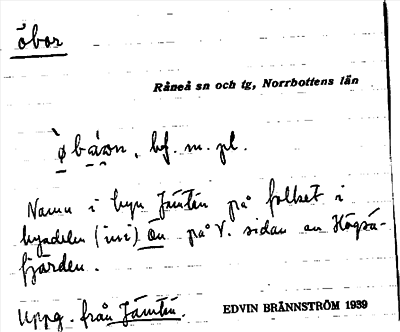 öbor
Råneå sn och tg, Norrbottens län
bf. m. pl.
Namn i byn Jämtön på folket i
byadelen (ini) Ön på V. sidan av Högså-
fjärden.
Uppg. från Jämtön.
EDVIN BRÄNNSTRÖM 1939